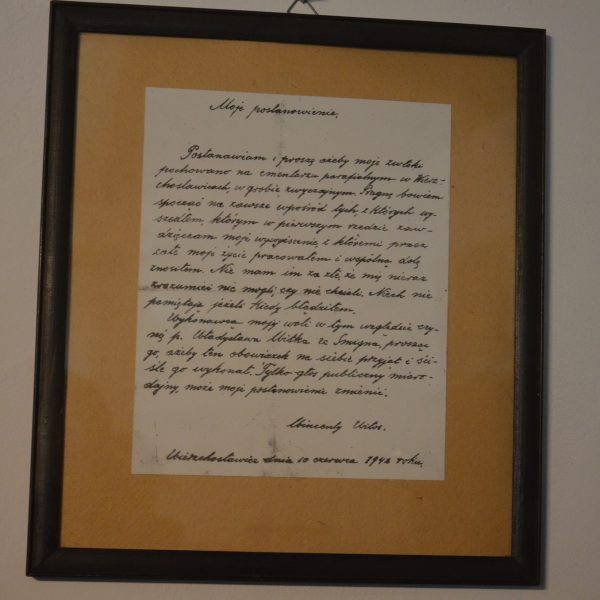 Moje postanowienie.
Postanawiam i proszę ażeby moje zwłoki
pochowano na cmentarzu parafialnym w Wierz-
chosławicach, w grobie zwyczajnym. Pragnę bowiem
spocząć na zawsze wpośród tych, z których wy-
szedłem, którym w pierwszym rzędzie zaw-
dzięczam moje wywyższenie, z któremi przez
całe moje życie pracowałem i wspólną dolę
znosiłem. Nie mam im za złe, że mię nieraz
zrozumieć nie mogli, czy nie chcieli. Niech nie
pamiętają jeżeli kiedy błądziłem.
Wykonawcą mojej woli w tym względzie czy-
nię p. Władysława Witka ze Śmigna, prosząc
go, ażeby ten obowiązek na siebie przyjął i ści-
śle go wykonał. Tylko głos publiczny miaro-
dajny, może moje postanowienie zmienić.
Wincenty Witos.
Wierzchosławice dnia 10 czerwca roku.